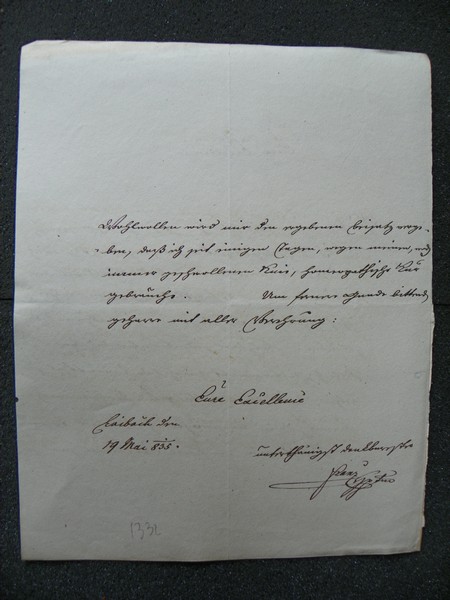 Wohlwollen wird mir den ergebenen Beisatz verge-
ben, daß ich seit einigen Tagen, wegen meinem, noch
immer geschwollenen Knie, homeopathische Kur
gebrauche. Um fernere Gnade bittend
geharre mit aller Verehrung:
Eure Excellenz
Laibach den
19 Mai 835.
unterthänigst dankbarster
Franz
1332